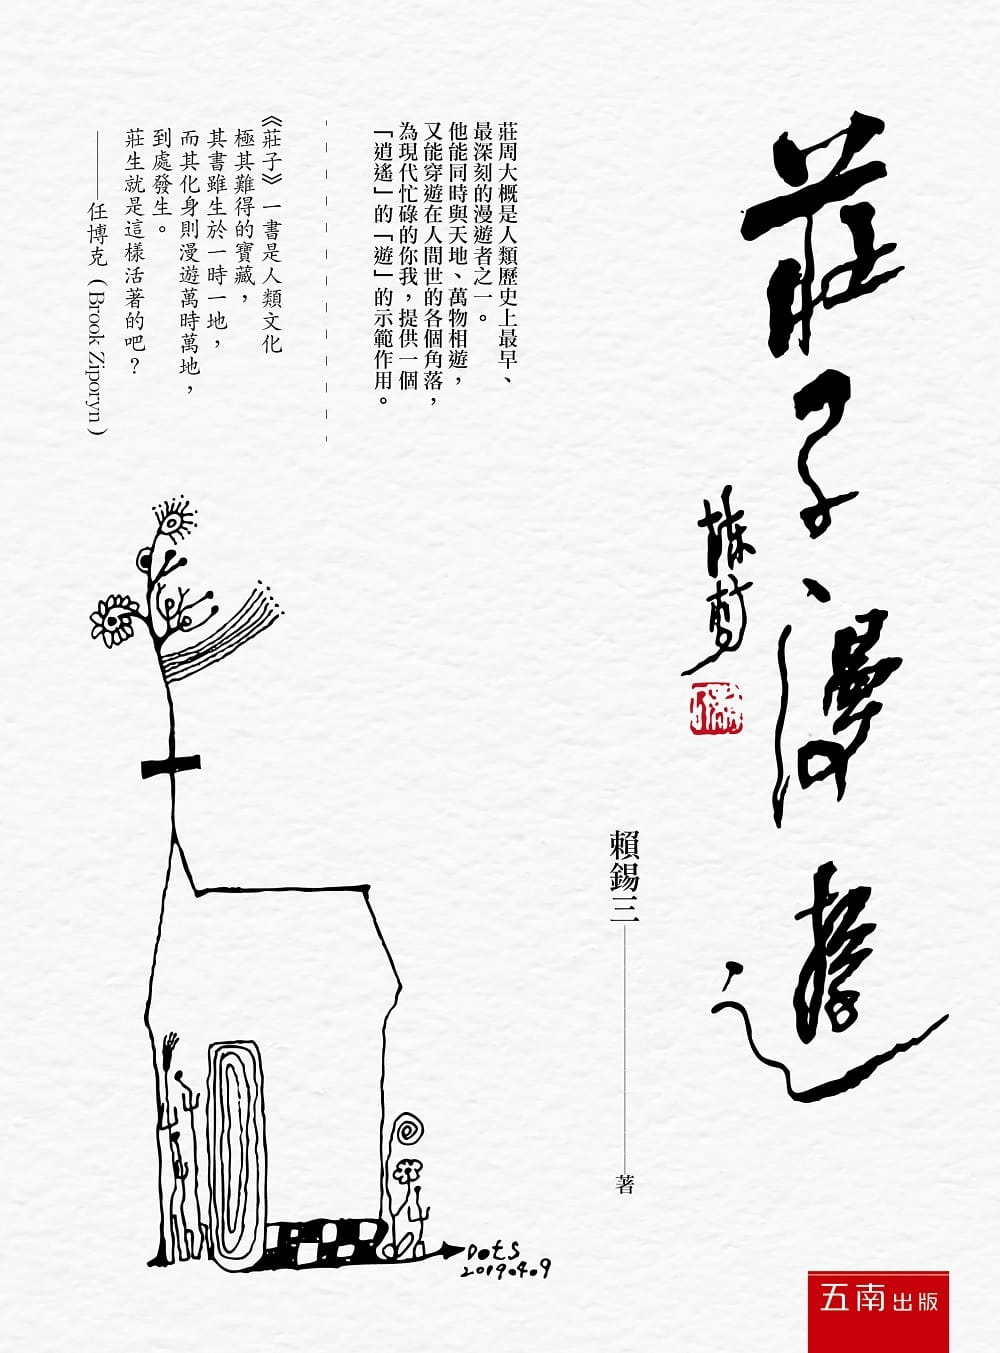 莊子、漫遊
賴錫三
著
莊周大概是人類歷史上最早、
最深刻的漫遊者之一。
他能同時與天地、萬物相遊，
又能穿遊在人間世的各個角落，
為現代忙碌的你我，提供一個
「逍遙」的「遊」的示範作用。
《莊子》一書是人類文化
極其難得的寶藏，
其書雖生於一時一地，
而其化身則漫遊萬時萬地，
到處發生。
莊生就是這樣活著的吧？
——任博克（Brook Ziporyn）
Dots
2019.4.9
五南出版